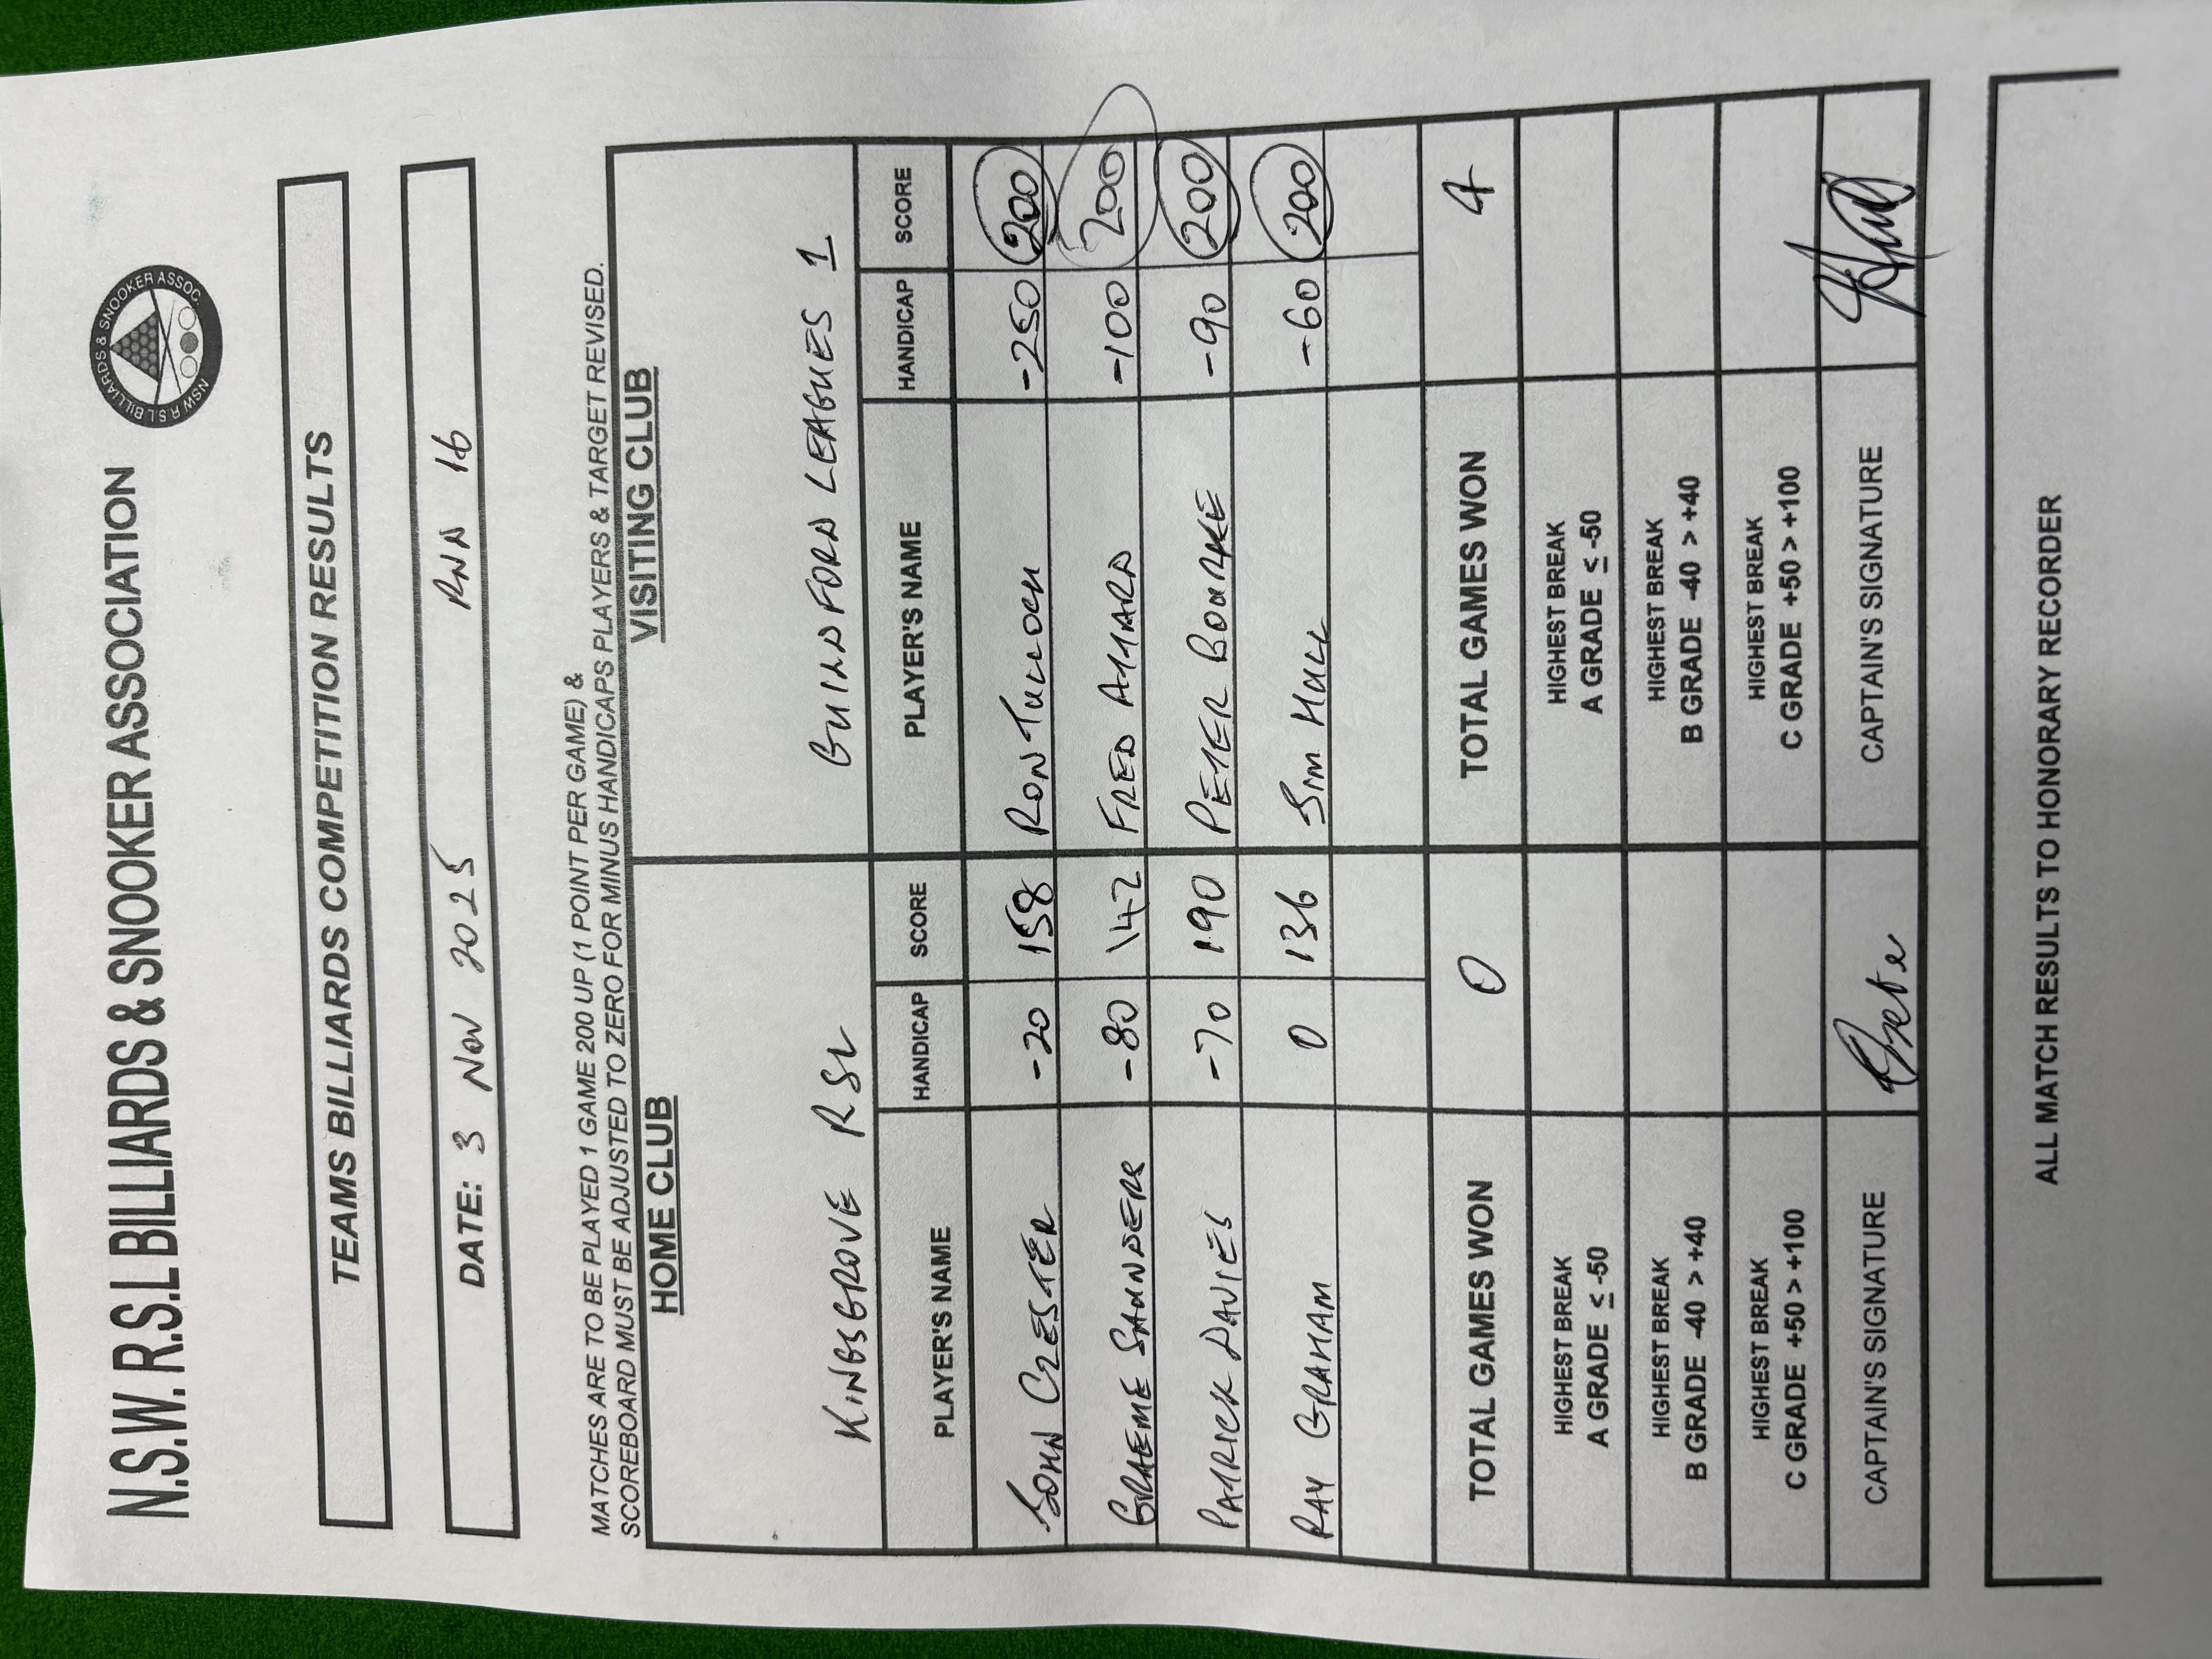 N.S.W. R.S.L BILLIARDS & SNOOKER ASSOCIATION
NSW R.S.L BILLIARDS & SNOOKER ASSOC.
TEAMS BILLIARDS COMPETITION RESULTS
DATE: 3 Nov 2025 RND 16
MATCHES ARE TO BE PLAYED 1 GAME 200 UP (1 POINT PER GAME) &
SCOREBOARD MUST BE ADJUSTED TO ZERO FOR MINUS HANDICAPS PLAYERS & TARGET REVISED.
HOME CLUB VISITING CLUB
KINGSGROVE RSL GUILDFORD LEAGUES 1
PLAYER'S NAME HANDICAP SCORE PLAYER'S NAME HANDICAP SCORE
JOHN -20 158 RON TULLOCH -250 200
GRAEME SAUNDERS -80 142 FRED -100 200
PATRICK DAVIES -70 190 PETER BOURKE -90 200
RAY GRAHAM 0 136 JIM HULL -60 200
TOTAL GAMES WON 0 TOTAL GAMES WON 4
HIGHEST BREAK HIGHEST BREAK
A GRADE ≤ -50 A GRADE ≤ -50
HIGHEST BREAK HIGHEST BREAK
B GRADE -40 > +40 B GRADE -40 > +40
HIGHEST BREAK HIGHEST BREAK
C GRADE +50 > +100 C GRADE +50 > +100
CAPTAIN'S SIGNATURE CAPTAIN'S SIGNATURE
ALL MATCH RESULTS TO HONORARY RECORDER